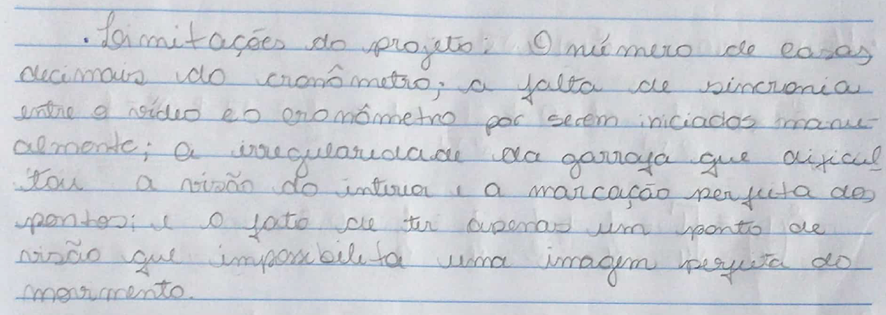 . Limitações do projeto: O número de casas
decimais do cronômetro; a falta de sincronia
entre o vídeo e o cronômetro por serem iniciados manu-
almente; a irregularidade da garrafa que dificul
tou a visão do interior e a marcação perfeita dos
pontos; e o fato de ter apenas um ponto de
visão que impossibilita uma imagem perfeita do
movimento.